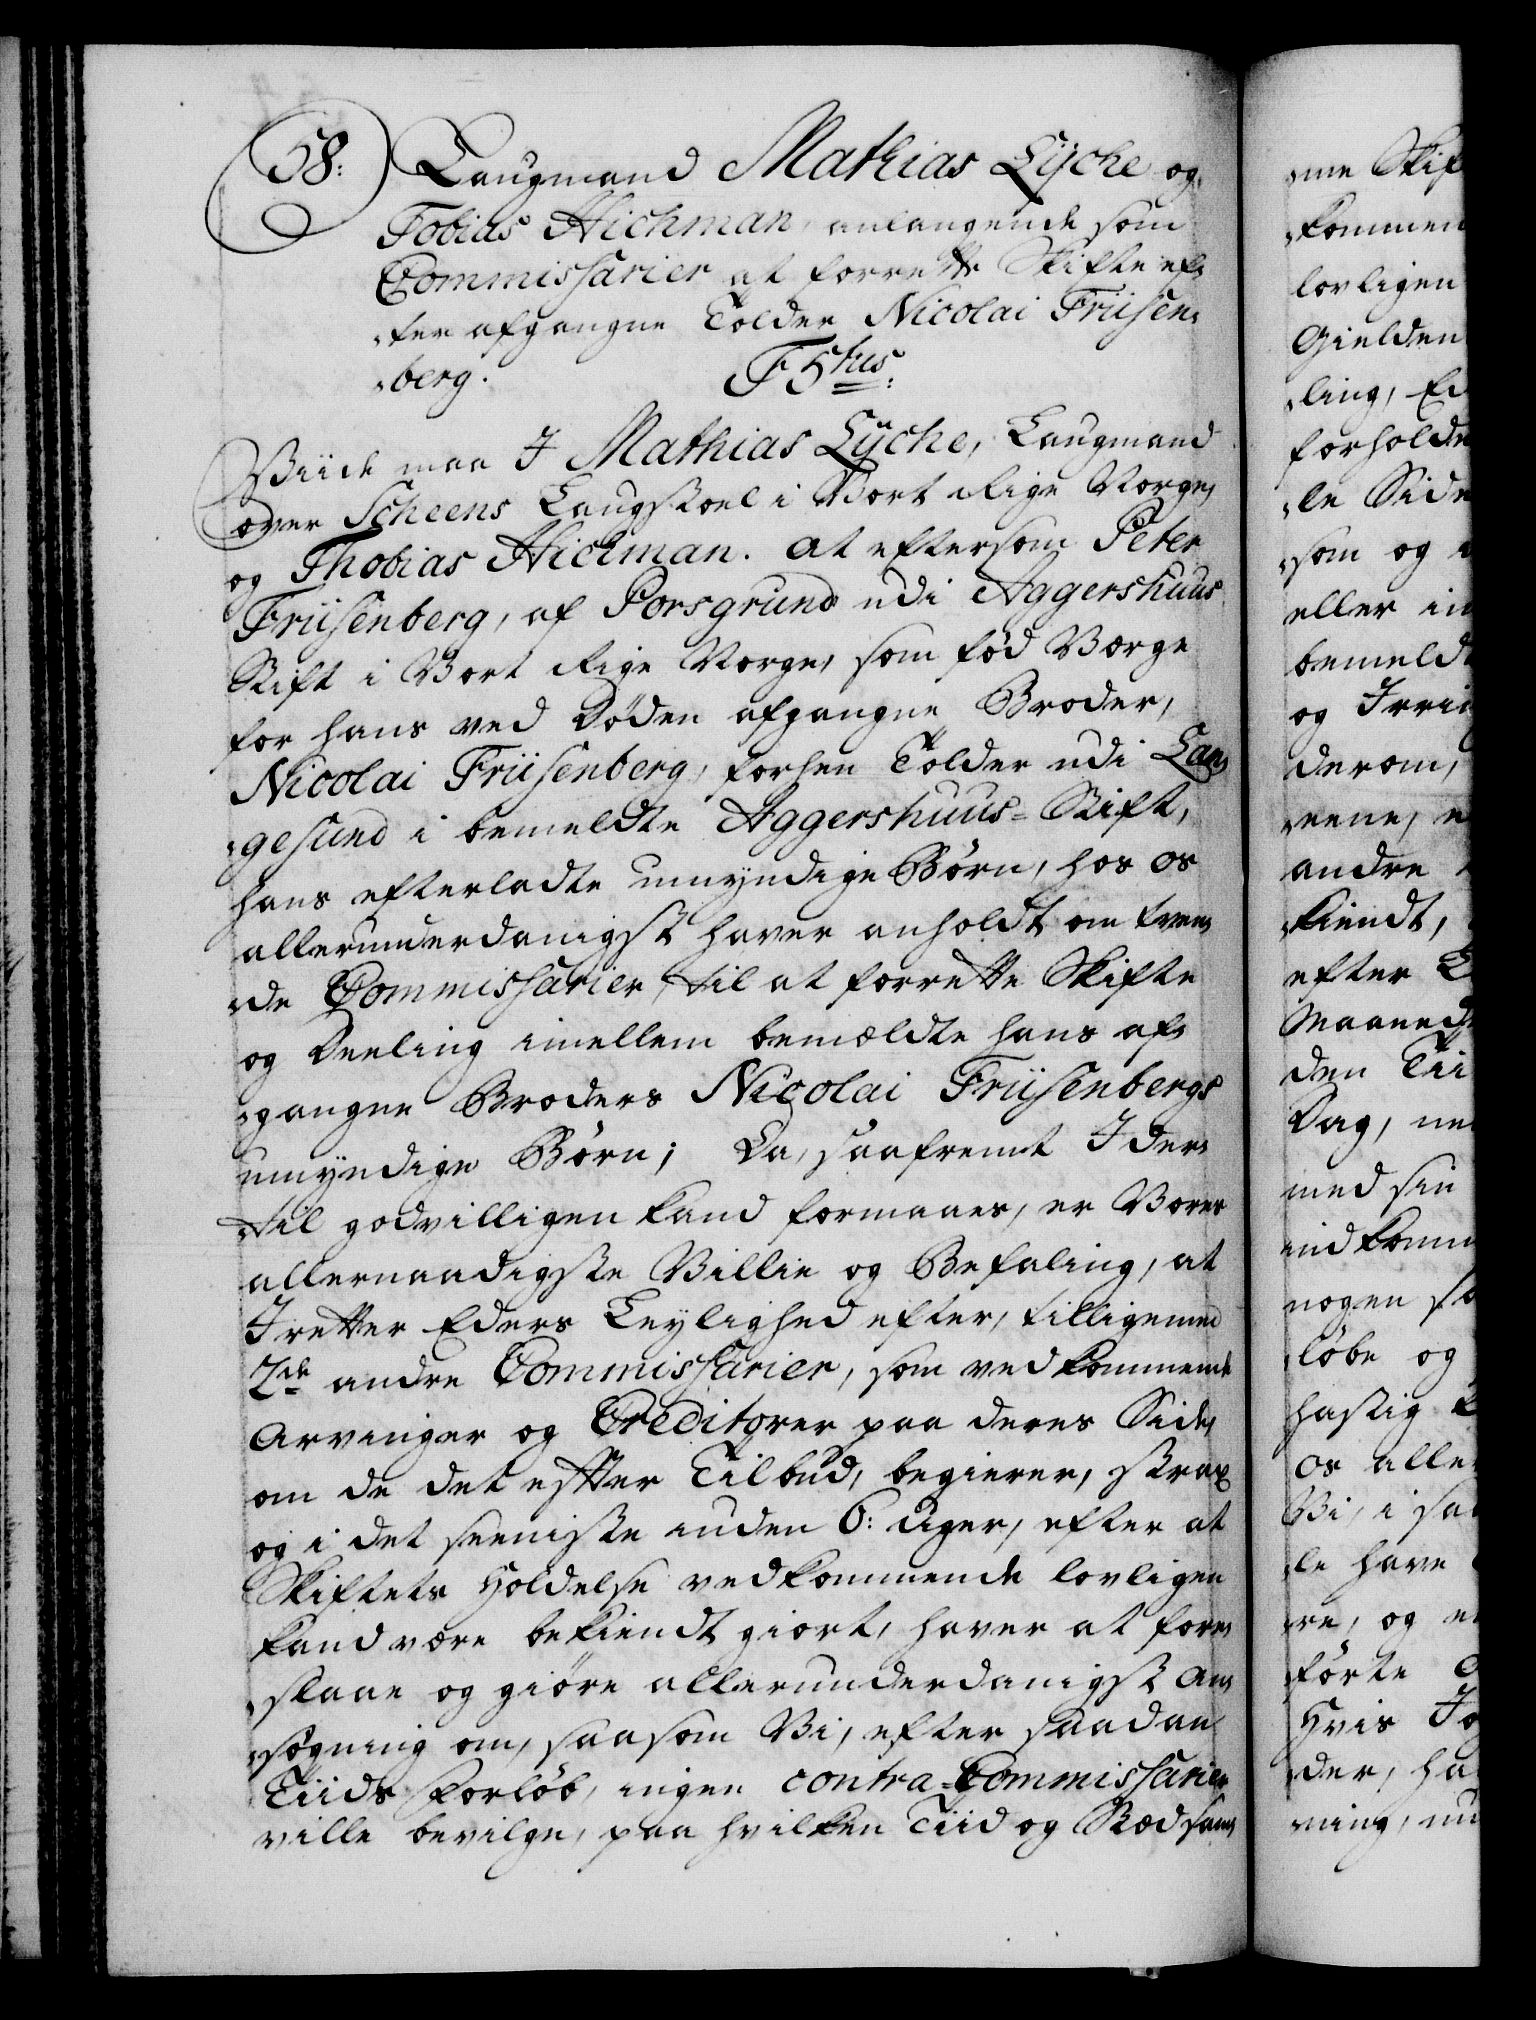 58: Laugmand Mathias Lÿche og
Tobias Hichman, anlangende som
Commissarier at forrette Skifte ef-
-ter afgangne Tolder Nicolai Friisen-
-berg. F5tus.
Viide maa I Mathias Lÿche, Laugmand
over Scheens Laugstoel i Vort Rige Norge,
og Thobias Hichman. At eftersom Peter
Friisenberg, af Porsgrund udi Aggershuus
Stift i Vort Rige Norge, som fød Værge
for hans ved Døden afgangne Broder,
Nicolai Friisenberg, forhen Tolder udi Lan-
-gesund i bemeldte Aggershuus-Stift,
hans efterladte umyndige Børn, hos os
allerunderdanigst haver anholdt om tven-
-de Commissarier, til at forrette Skifte
og Deeling imellem bemældte hans af-
-gangne Broders Nicolai Friisenbergs
umyndige Børn; Da, saafremt I der-
-til godvilligen kand formaaes, er Vores
allernaadigste Villie og Befaling, at
I retter Eders Leylighed efter, tilligemed
2de andre Commissarier, som vedkommende
Arvinger og Creditorer paa deres Side,
om de det efter Tilbud, begierer, strax
og i det seeniste inden 6: Uger, efter at
Skiftets Holdelse vedkommende lovligen
kand være bekiendt giort, haver at fore-
-slaae og giøre allerunderdanigst An-
-søgning om, saasom Vi, efter saadan
Tiids Forløb, ingen contra-Commissarier
ville bevilge, paa hvilken Tiid og Stæd sam-
-me Skif
-kommen
lovligen
Gielden
-ling, Ei
forholde
-le Side
-som og
eller in
bemeldt
og Irri
derom,
-eene, e
andre
-kiendt,
efter
Maaneds
den Tii
Dag, ne
med sin
indkomm
nogen so
-løbe og
hastig
os alle
Vi, i saa
-le have
-re, og e
-førte
Hvis Jo
-der, ha
-ning, nu